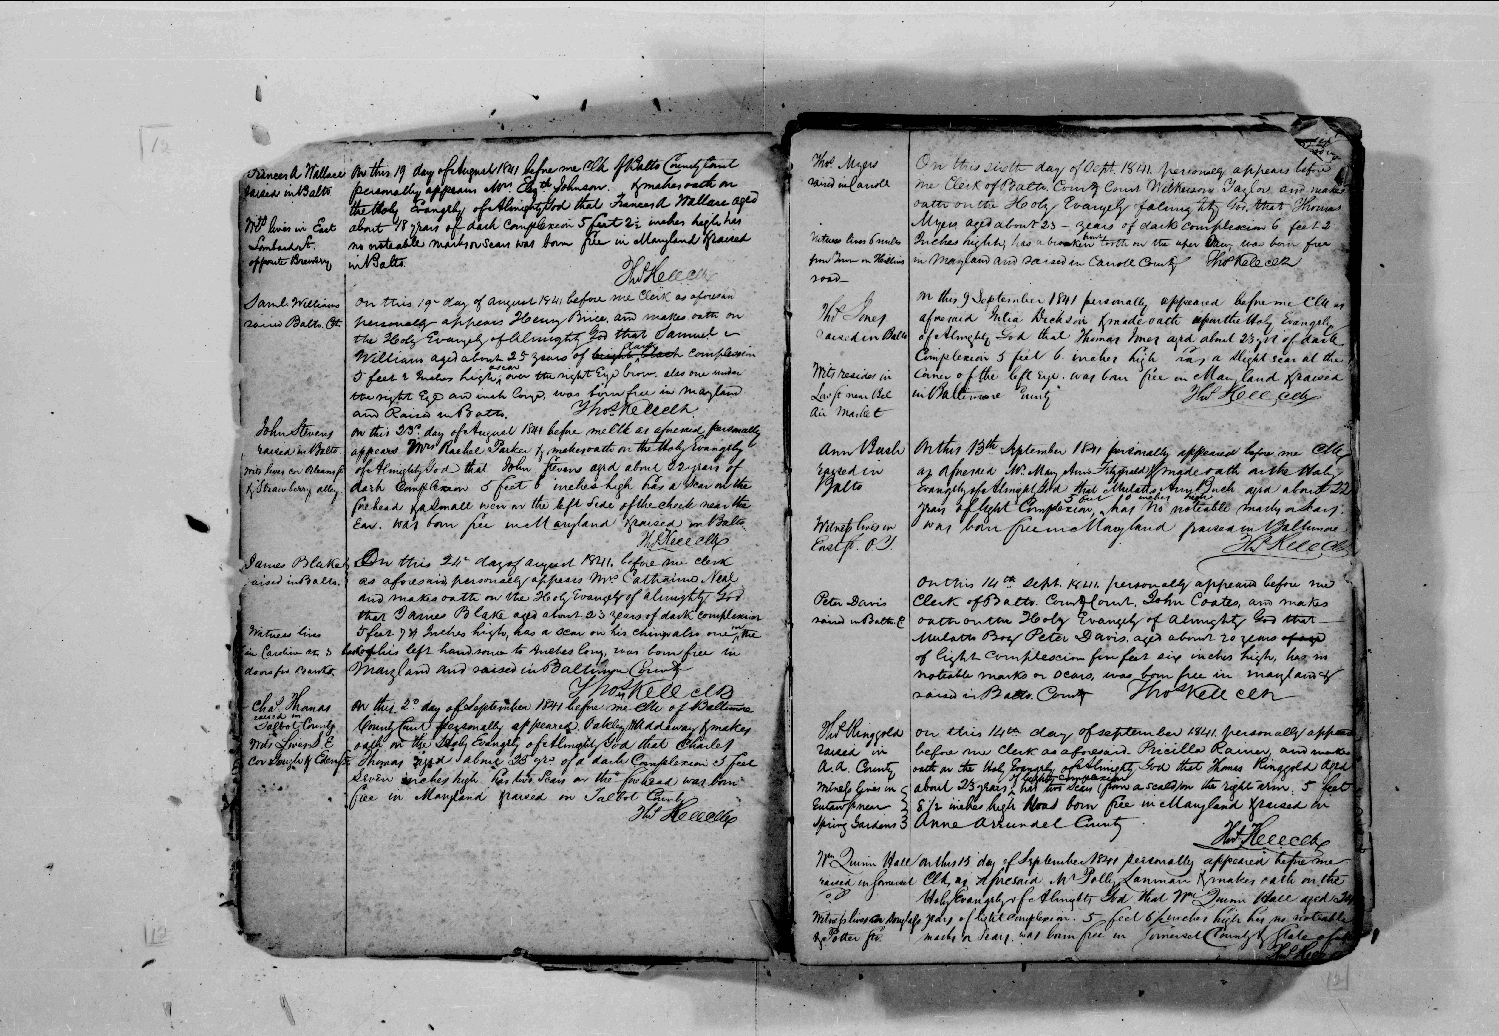 Frances A Wallace
raised in Balto
Wits lives in East
Lombard St.
opposite Brewery
On this 19 day of August 1841 before me Clk of Balto County Court
personally appears Mrs Elizth Johnson & makes oath on
the Holy Evangely of Almighty God that Frances A Wallace aged
about 18 years of dark complexion 5 feet 2½ inches high has
no noteable marks or scars was born free in Maryland & raised
in Balto.
Thos Kell Clk
Saml Williams
raised Balto. Ct.
On this 19th day of August 1841 before me Clerk as aforesaid
personally appears Henry Brice, and makes oath on
the Holy Evangely of Almighty God that Samuel
Williams aged about 25 years of dark complexion
5 feet 2 Inches high, a scar over the right Eye brow. also one under
the right Eye an inch long, was born free in Maryland
and Raised in Balto.
Thos Kell Clk.
John Stevens
raised in Balto
Wits lives cor Orleans St
& Strawberry alley
On this 23d. day of August 1841 before me Clk as aforesaid personally
appears Mrs Rachel Parker & makes oath on the Holy Evangely
of Almighty God that John Stevens aged about 22 years of
dark Complexion 5 feet 6 inches high has a scar on the
forehead & a small wen on the left side of the cheek near the
Ear. was born free in Maryland & raised in Balto.
Thos Kell Clk
James Blake
raised in Balto.
Witness lives
in Caroline St. 3
doors for Bank St.
On this 24th day of August 1841. before me clerk
as aforesaid, personally appears Mrs Catharine Neal
and makes oath on the Holy Evangely of Almighty God
that James Blake aged about 23 years of dark complexion
5 feet 7¼ Inches high, has a scar on his chin, also one in the
back of his left hand some two Inches long, was born free in
Maryland and raised in Baltimore County
Thos Kell Clk
Chas. Thomas
raised in
Talbot County
Wits Lives S. E
Cor Slough & Eden St
On this 2d day of September 1841 before me Clk of Baltimore
County Court personally appeared Oakley Haddaway & makes
oath on the Holy Evangely of Almighty God that Charles
Thomas aged about 25 yrs. of a dark Complexion 5 feet
Seven inches high has two Scars on the forehead was born
free in Maryland & raised on Talbot County
Thos Kell Clk
Thos Myers
raised in Carroll
Witness lives 6 miles
from Town on Hollins
road
On this sixth day of Sept. 1841 personally appears before
me Clerk of Balto. County Court Wilkerson Taylor and makes
oath on the Holy Evangely of almighty God. that Thomas
Myers aged about 23 - years of dark complexion 6 feet 2
Inches high, has a broken tooth on the uper Jaw, was born free
in Maryland and raised in Carroll County Thos Kell Clk
Thos. Jones
raised in Balto
Wits resides in
Low St near Bel
Air Market
On this 9 September 1841 personally appeared before me Clk as
aforesaid Julia Dickson & made oath upon the Holy Evangely
of Almighty God that Thomas Jones aged about 23 yrs of dark
Complexion 5 feet 6 inches high has a slight scar at the
corner of the left Eye. was born free in Maryland & raised
in Baltimore County
Thos Kell Clk
Ann Bush
raised in
Balto
Witness lives in
East St. O. T.
On this 13th September 1841 personally appeared before me Clk
as aforesaid Mrs. Mary Ann Fitzgerald & made oath on the Holy
Evangely of Almighty God that Mulatto Ann Bush aged about 22
years of light Complexion, 5 feet inches high has no noteable marks or scars.
was born free in Maryland raised in Baltimore
Thos Kell Clk
Peter Davis
raised in Balto. C
On this 14th Sept. 1841. personally appeared before me
Clerk of Balto. County Court, John Coates, and makes
oath on the Holy Evangely of Almighty God that
Mulatto Boy Peter Davis. aged about 20 years
of light complexion five feet six inches high, has no
noteable marks or scars, was born free in Maryland &
raised in Balto. County Thos Kell Clk
Thos. Ringgold
raised in
A. A. County
Witness lives in
Eutaw St near
Spring Gardens
On this 14th day of September 1841. personally appeared
before me Clerk as aforesaid. Pricilla Rainer, and makes
oath on the Holy Evangely of Almighty God that Thomas Ringgold aged
about 23 years of light complexion has two scars from a scald on the right arm. 5 feet
8 1/2 inches high was born free in Maryland & raised in
Anne Arrundel County
Thos. Kell Clk
Wm Quinn Hall
raised in Somerset
Co
Witness lives cor Douglass
& Potter Sts.
On this 15 day of September 1841 personally appeared before me
Clk, as aforesaid Mrs Polly Lanman & makes oath on the
Holy Evangely of Almighty God that Wm Quinn Hall aged 24
years of light complexion. 5 feet 6 Inches high has no noteable
marks or Scars. was born free in Somerset County & State of
Thos Kell